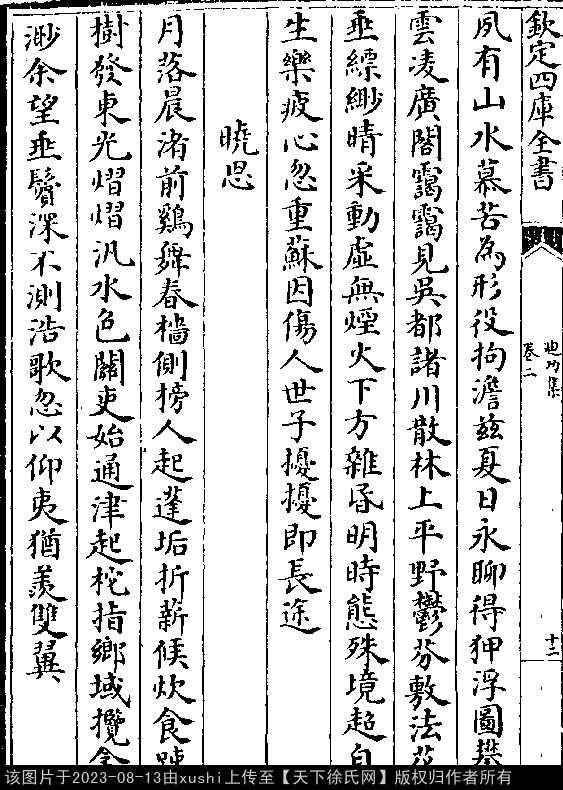 欽定四庫全書
迪功集
卷二
十二
夙有山水慕苦為形役拘澹兹夏日永聊得狎浮圖攀
雲凌廣閣靄靄見吳都諸川散林上平野鬱芬敷法花
垂縹緲晴采動虛無煙火下方雜昏明時態殊境超自
生樂疲心忽重蘇因傷人世子擾擾即長途
曉思
月落晨渚前鷄舞春檣側榜人起蓬垢折薪候炊食
樹發東光熠熠汎水色關吏始通津起柁指鄉域攬余
渺余望垂鬢深不測浩歌忽以仰夷猶羨雙翼
该图片于2023-08-13由xushi上传至【天下徐氏网】版权归作者所有